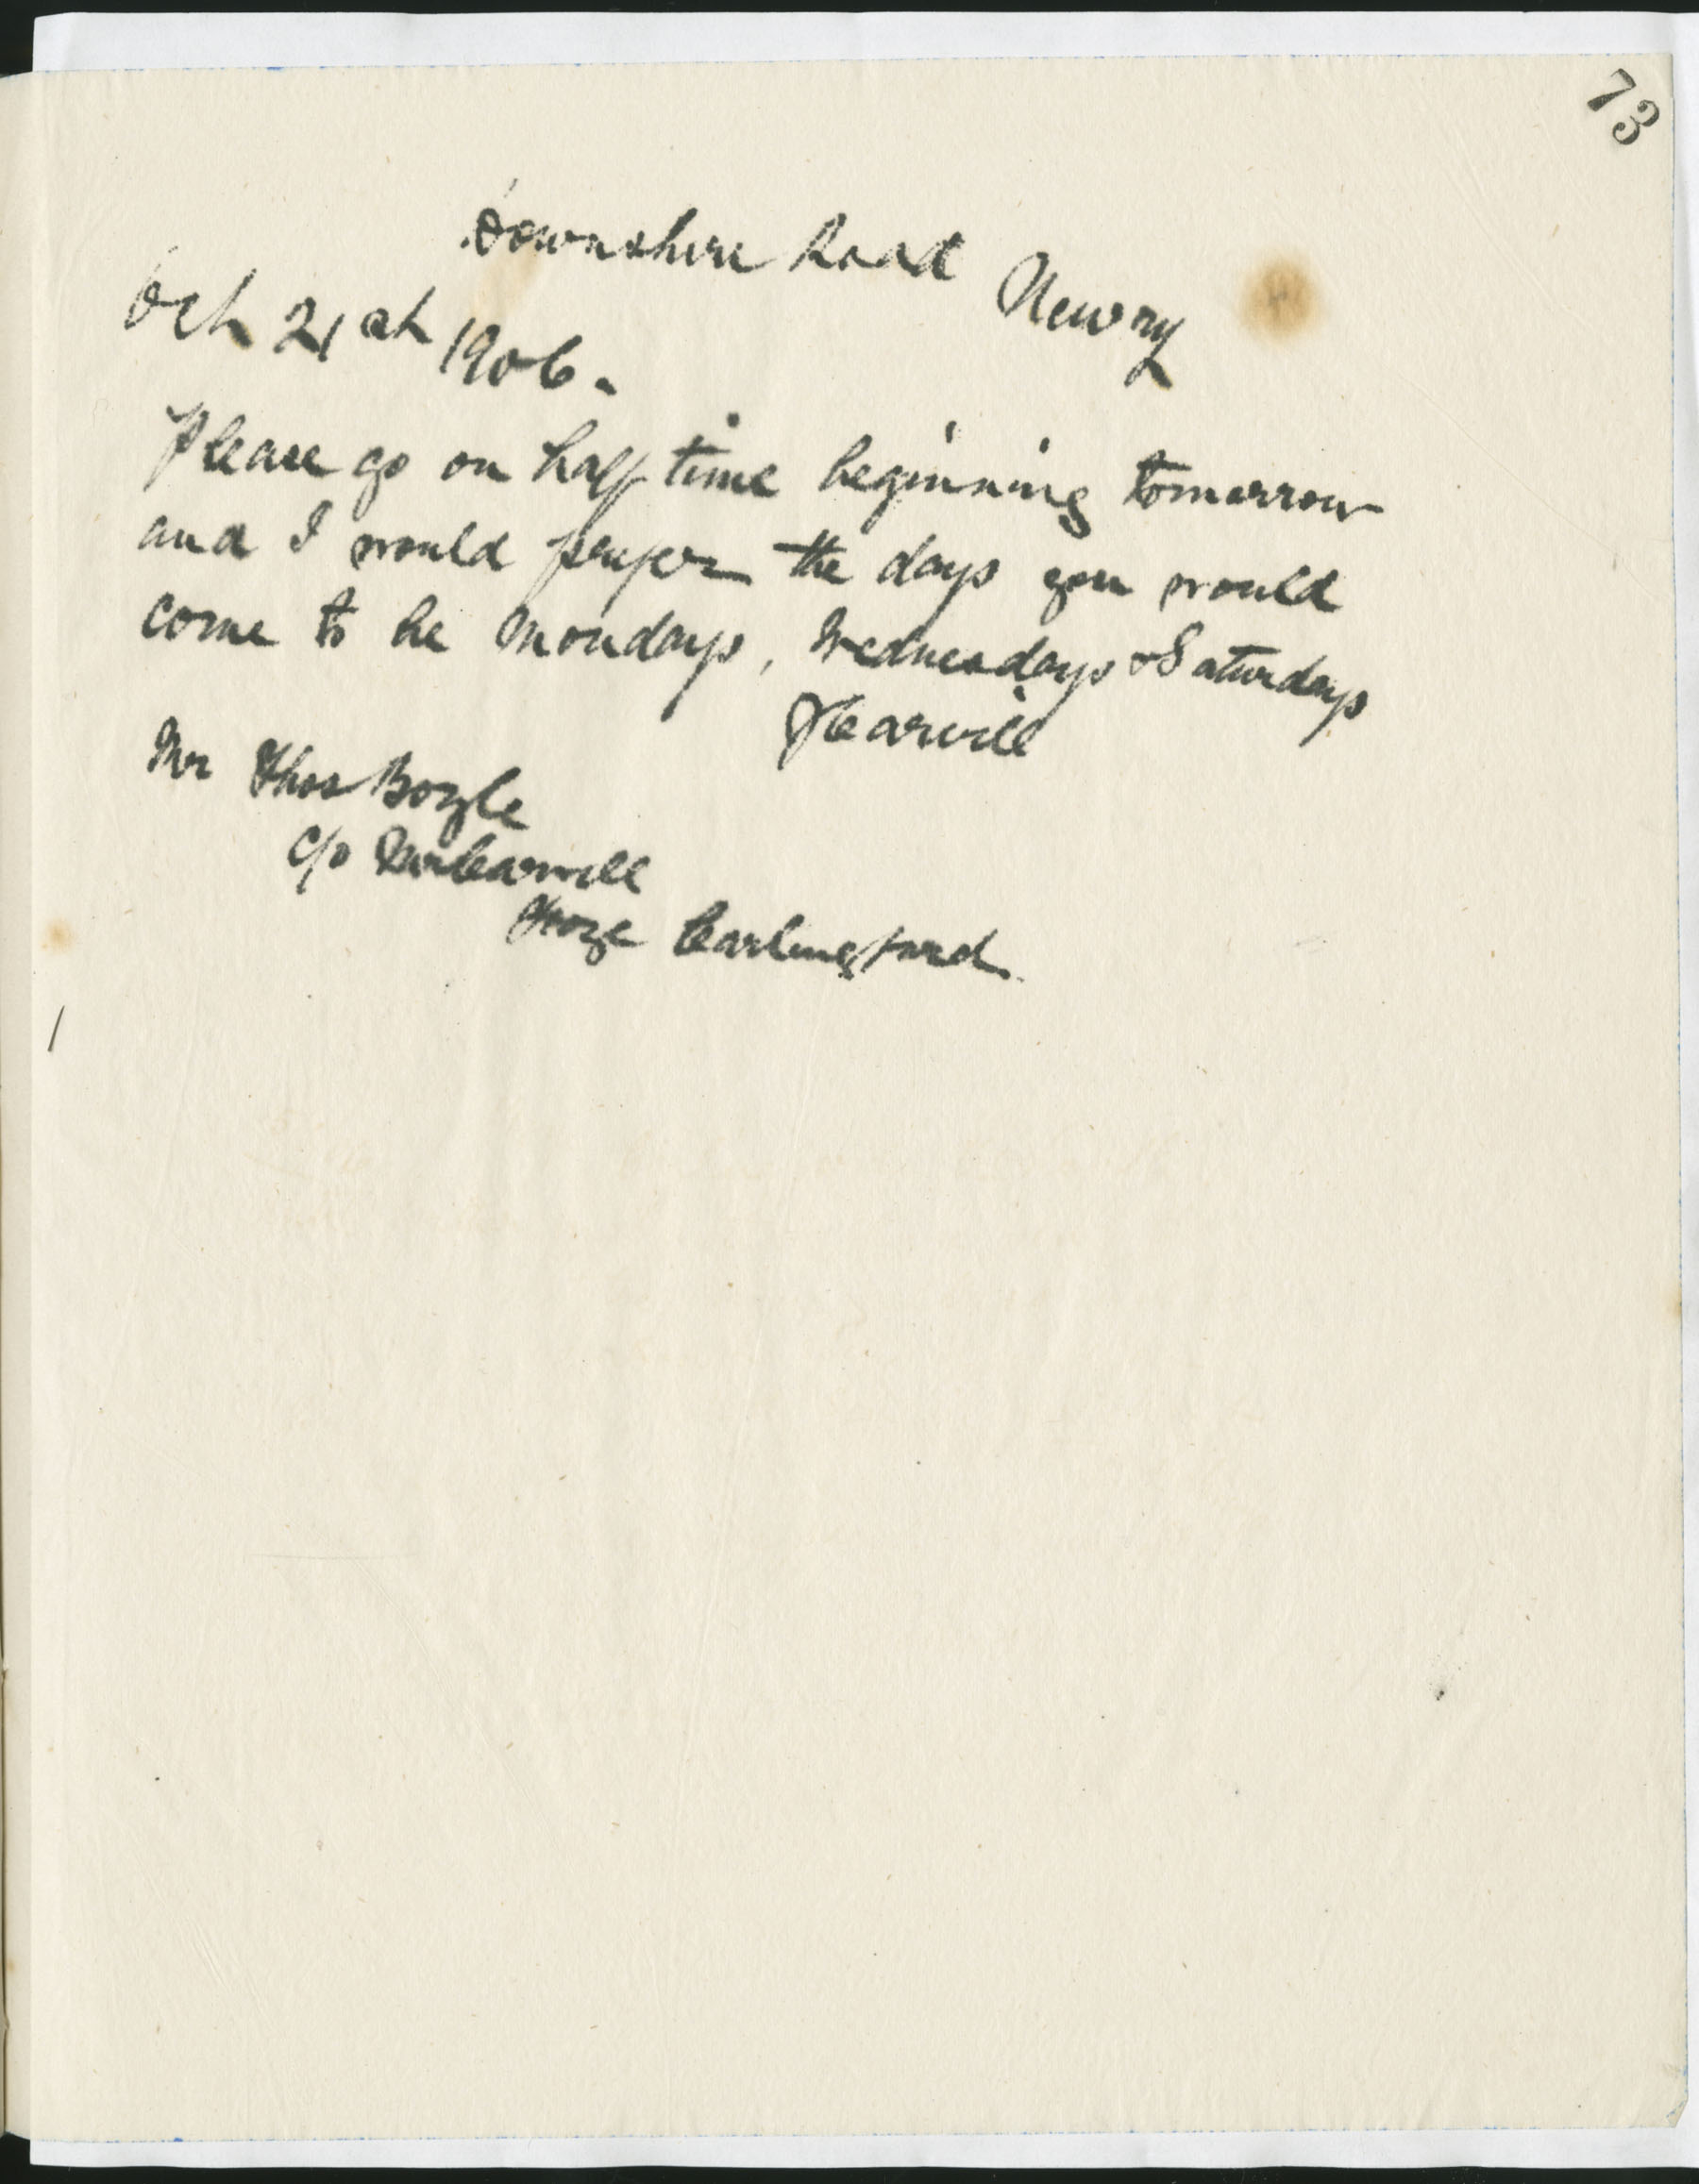 73
Downshire Road Newry
Oct 21st 1906.
Please go on half time beginning tomorrow
and I would prefer the days you would
come to be Mondays, Wednesdays & Saturdays
JCarvill
Mr Thos Boyle
c/o Mr Carvill
Carlingford